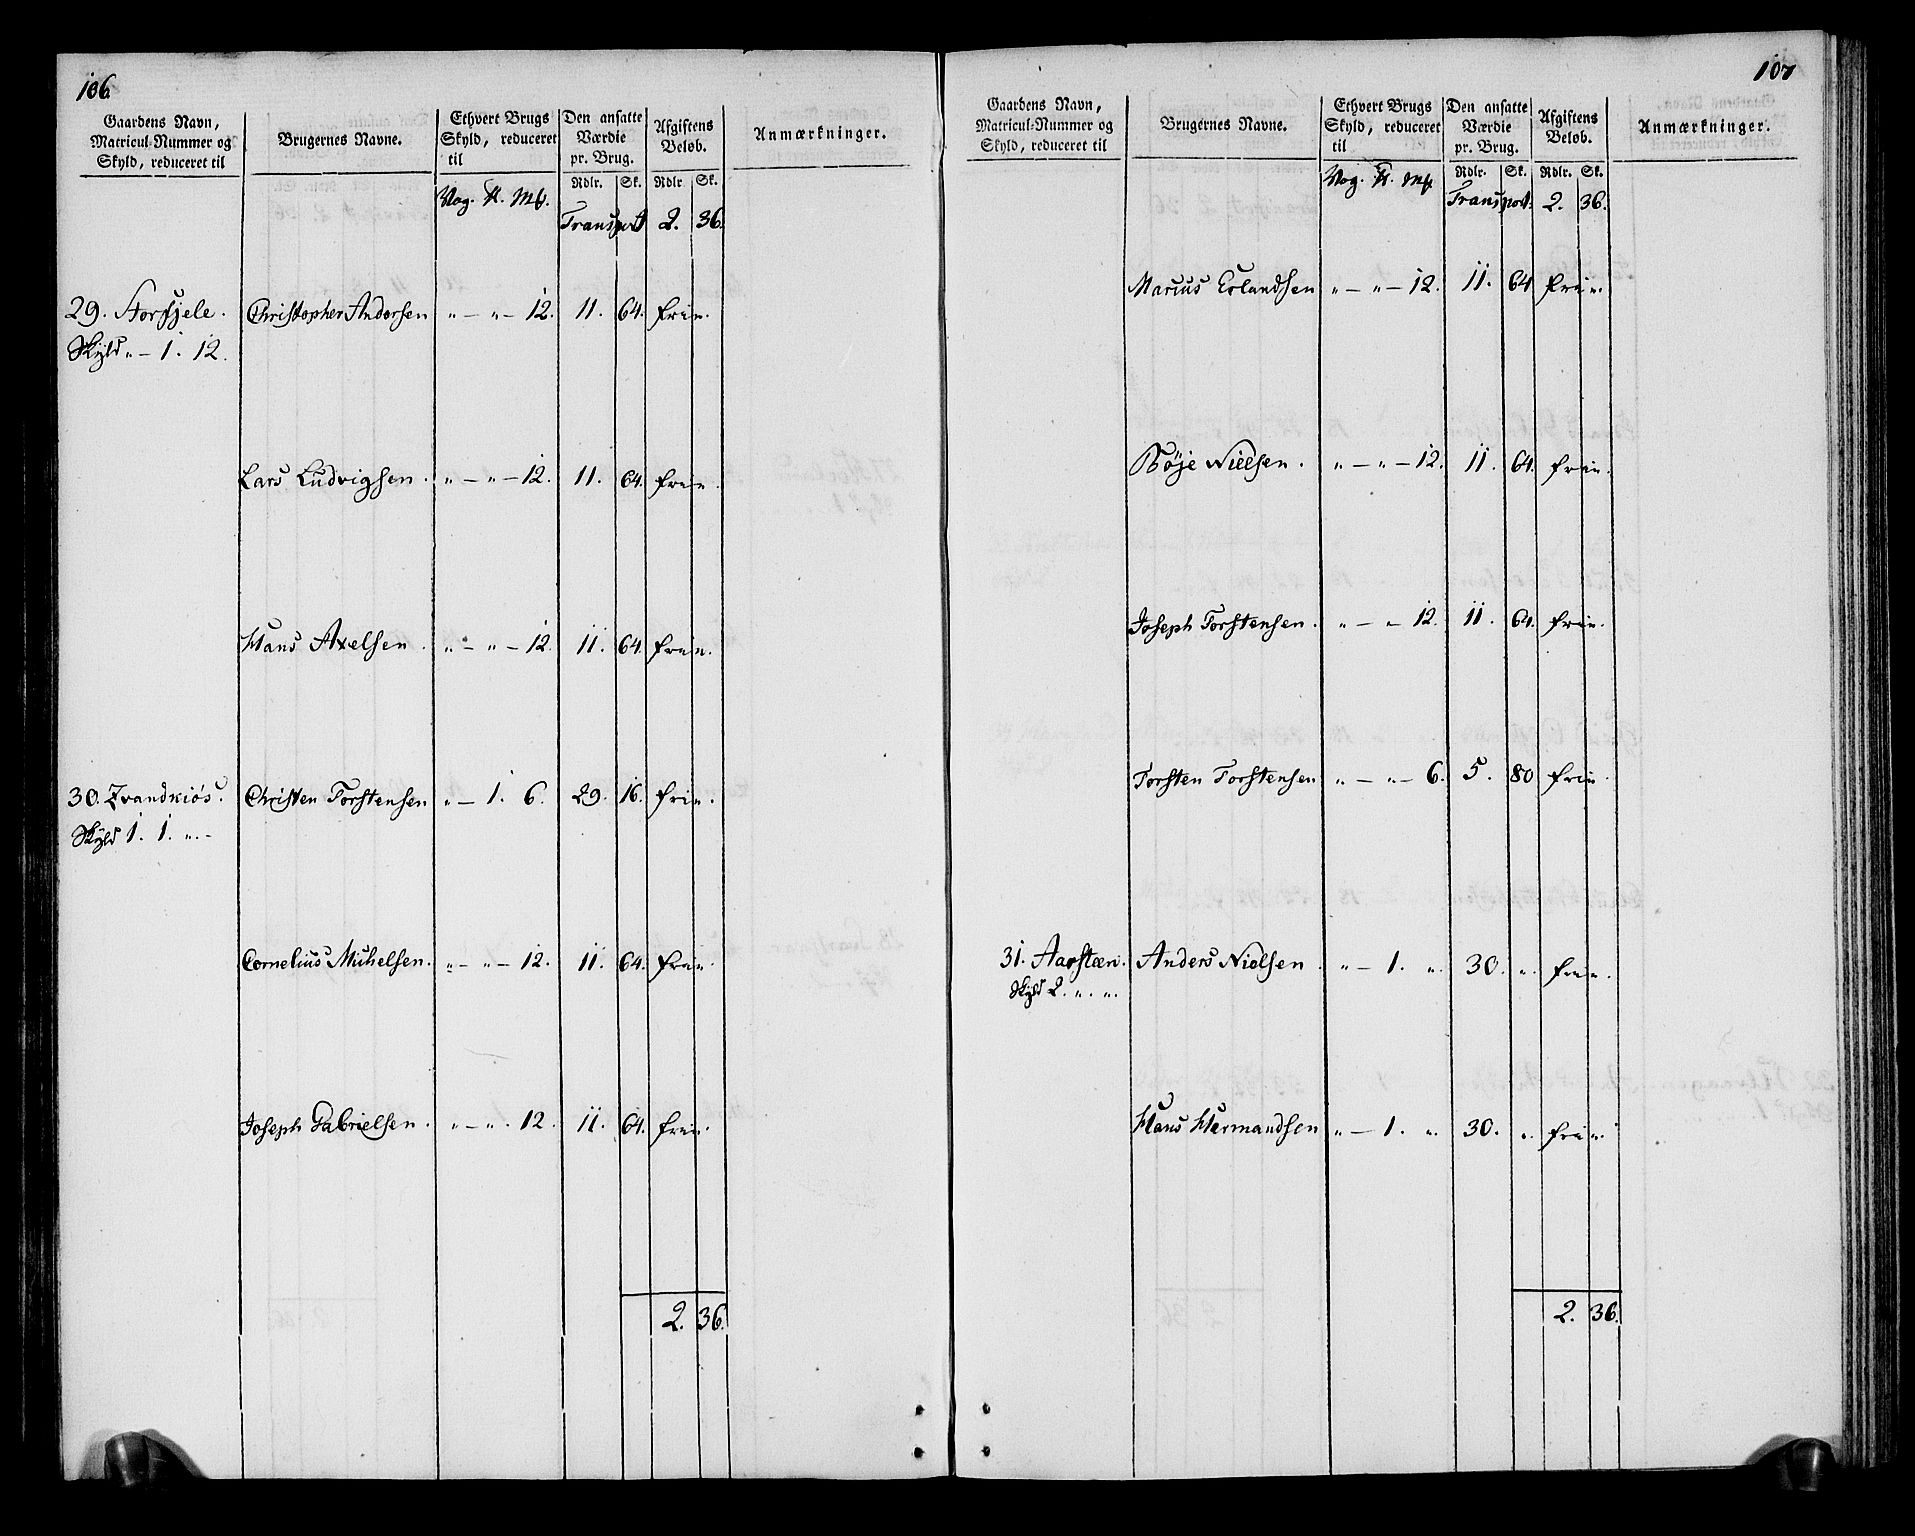 106.
Gaardens Navn, Matricul-Nummer og Skyld, reduceret til | Brugernes Navne. | Ethvert Brugs Skyld, reduceret til | Den ansatte Værdie pr. Brug. | Afgiftens Beløb. | Anmærkninger.
Vog. ℔. Mk. | Rdlr. | Sk. | Rdlr | Sk.
Transport | 2. | 36.
29. Storfjele. | Christopher Andersen | „ – „ – 12. | 11. | 64. | frie.
Skyld „ – 1. 12.
Lars Ludvigsen. | „ – „ – 12. | 11. | 64. | frie.
Hans Axelsen. | „ – „ – 12. | 11. | 64. | frie.
30. Qvandkiös. | Christen Torstensen | „ – 1. 6. | 29. | 16. | frie.
Skyld 1. 1. „. –
Cornelius Michelsen. | „ – „ – 12. | 11. | 64. | frie.
Joseph Gabrielsen. | „ – „. 12. | 11. | 64. | frie.
2. | 36.
107
Gaardens Navn, Matricul-Nummer og Skyld, reduceret til | Brugernes Navne. | Ethvert Brugs Skyld, reduceret til | Den ansatte Værdie pr. Brug. | Afgiftens Beløb. | Anmærkninger.
Vog. ℔. Mk. | Rdlr. | Sk. | Rdlr. | Sk.
Transport. | 2. | 36.
Marcus Erlandsen | „ – „ – 12. | 11. | 64 | frie.
Böje Nielsen. | „ – „ – 12. | 11. | 64. | frie.
Joseph Torstensen. | „ – „ – 12. | 11. | 64. | frie.
Torsten Torstensen | „ – „ – 6. | 5. | 80 | frie
31. Aarsteen. | Anders Nielsen. | „ – 1. „. | 30. | „. | frie.
Skyld 2. „. „.
Hans Hermandsen | „ – 1. „. | 30. | „. | frie.
2. | 36.